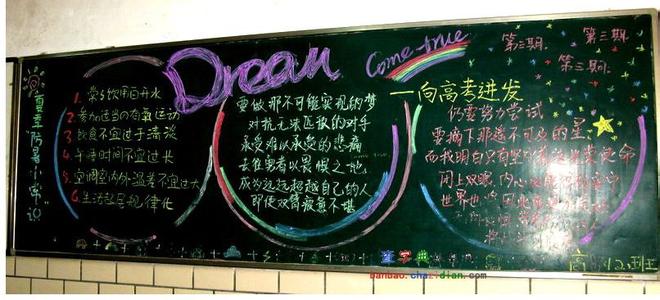 Dream
Come true
第三期
第三期
第三期
一向高考进发
夏季防暑小常识
1. 常饮用白开水
2. 参加适当の有氧运动
3. 饮食不宜过于清淡
4. 午睡时间不宜过长
5. 空调室内外温差不宜过大
6. 生活起居规律化
要做那不可能实现的梦
对抗无法匹敌的对手
承受难以承受的悲痛
去往勇者以畏惧之地
成为远远超越自己的人
即使双臂疲惫不堪
仍要努力尝试
要摘下那遥不可及的星
而我明白只有坚
使命
闭上双眼 内心
世界也
高一12班
查字典
banbao.chazidian.com